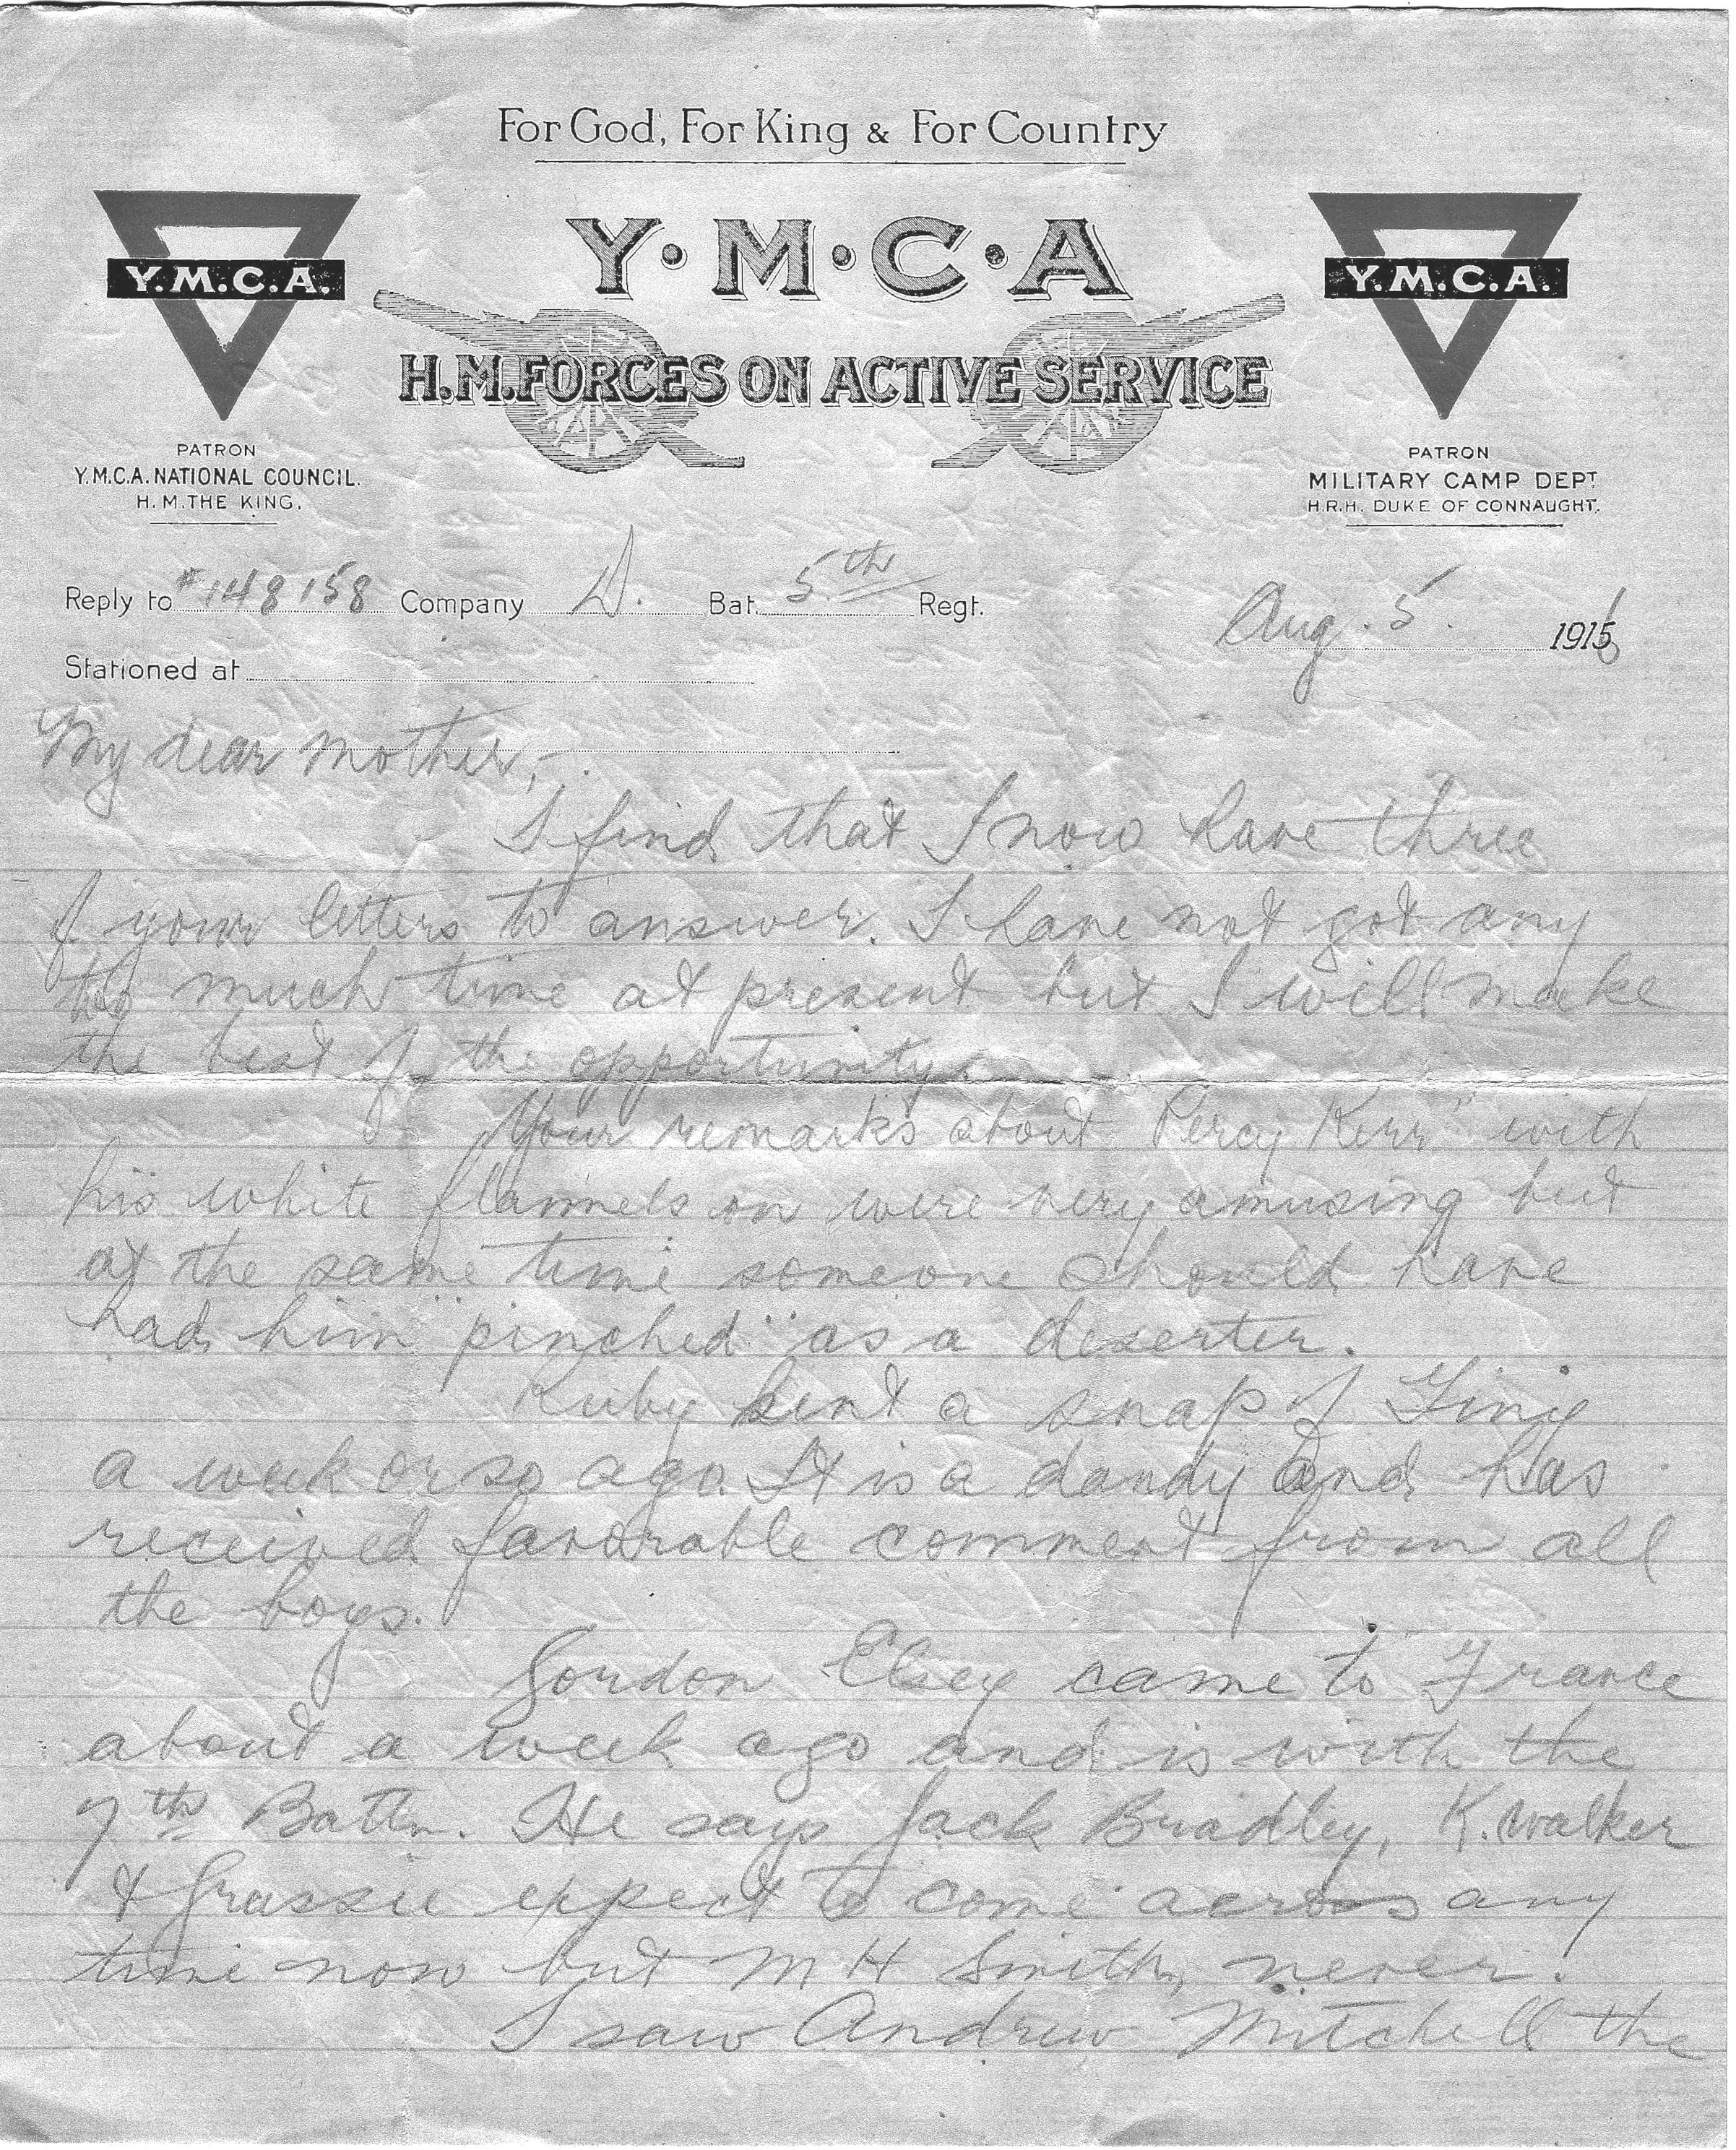 For God, For King & For Country
Y.M.C.A.
Y·M·C·A
Y.M.C.A.
H.M. FORCES ON ACTIVE SERVICE
PATRON
Y.M.C.A. NATIONAL COUNCIL.
H.M. THE KING.
PATRON
MILITARY CAMP DEPT
H.R.H. DUKE OF CONNAUGHT.
Reply to #148158 Company D. Bat. 5th Regt. Aug. 5. 1916
Stationed at
My dear Mother,-
I find that I now have three
of your letters to answer. I have not got any
too much time at present but I will make
the best of the opportunity.
Your remarks about "Percy Kerr" with
his white flannels on were very amusing but
at the same time someone should have
had him "pinched" as a deserter.
Ruby sent a snap of Tiny
a week or so ago. It is a dandy and has
received favorable comment from all
the boys.
Gordon Elsey came to France
about a week ago and is with the
7th Battn. He says Jack Bradley, K. Walker
& Grassie expect to come across any
time now but M H Smith, never.
I saw Andrew Mitchell the